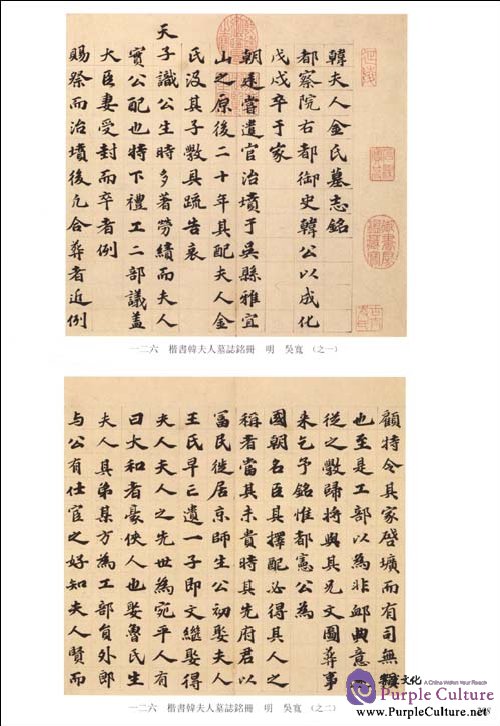 韓夫人金氏墓志銘
都察院右都御史韓公以成化
戊戌卒于家
朝廷嘗遣官治墳于吳縣雅宜
山之原後二十年其配夫人金
氏沒其子斆具疏告哀
天子識公生時多著勞績而夫人
實公配也特下禮工二部議蓋
大臣妻受封而卒者例
賜祭而治墳後凡合葬者近例
一二六 楷書韓夫人墓誌銘冊 明 吳寬 (之一)
顧特令其家啓壙而有司無
也至是工部以為非卹典意
從之斆歸將與其兄文圖葬事
來乞予銘惟都憲公為
國朝名臣其擇配必得其人之
稱者當其未貴時其先府君以
富民徙居京師生公初娶夫人
王氏早亡遺一子即文繼娶得
夫人夫人之先世為宛平人有
曰大和者豪俠人也娶魯氏生
夫人其弟某方為工部員外郎
与公有仕宦之好知夫人賢而
一二六 楷書韓夫人墓誌銘冊 明 吳寬 (之二)
文化
A China Within Your Reach
Purple Culture
www.purpleculture.net
Purple Culture
www.PurpleCulture.Net